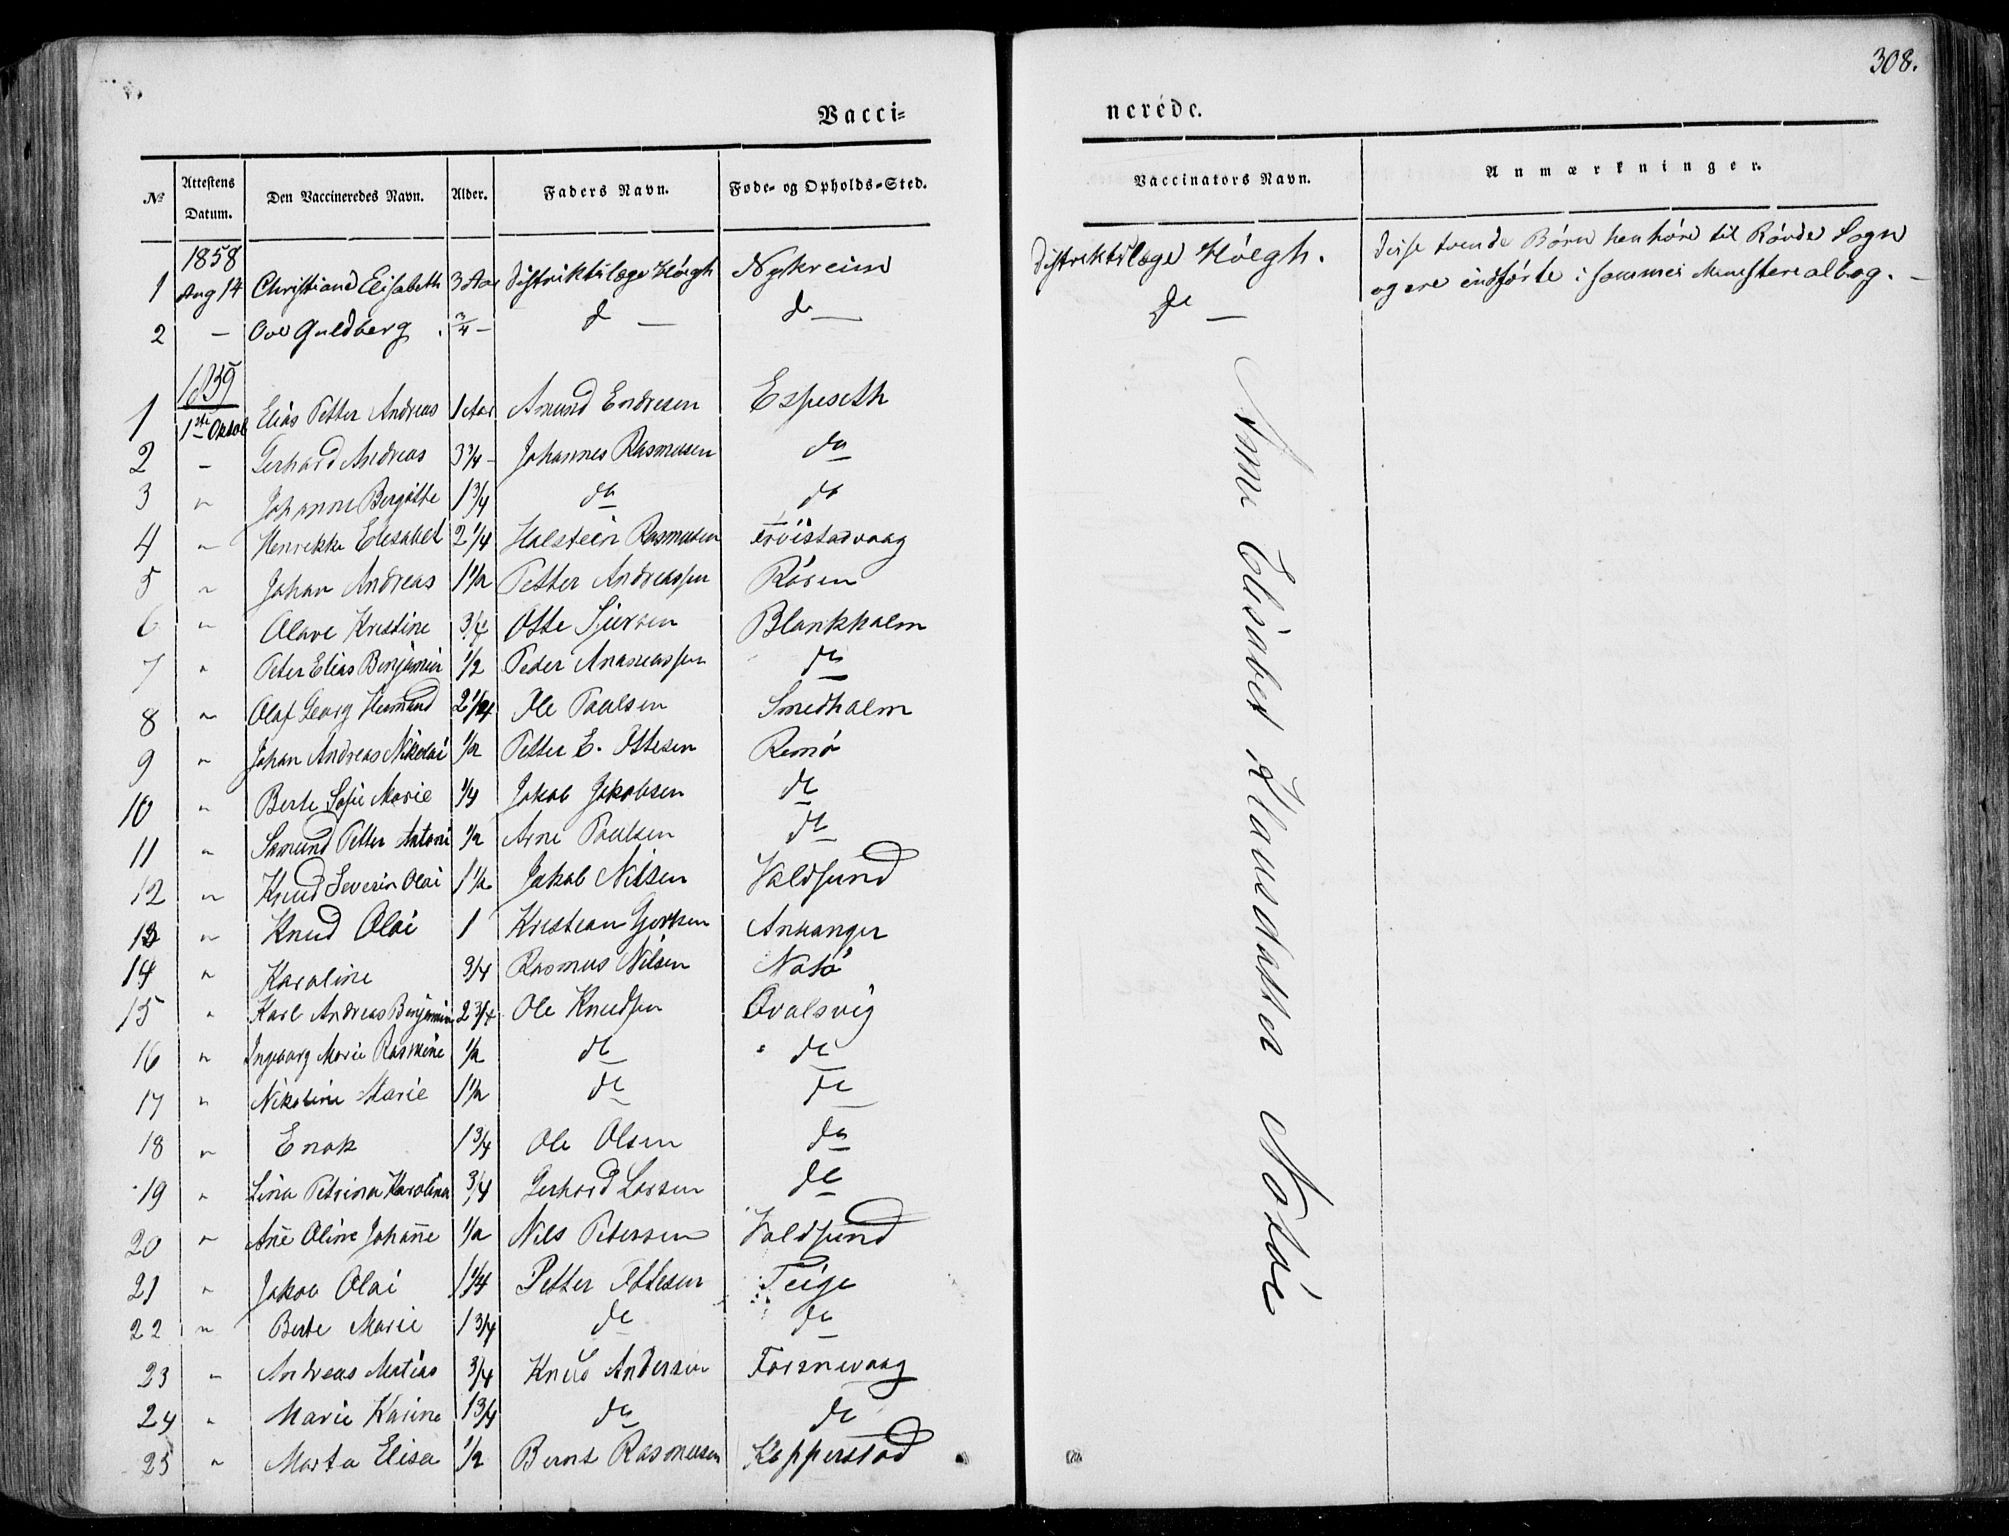 308.
Vacci= nerede.
№ Attestens Datum. Den Vaccineredes Navn. Alder. Faders Navn. Føde- og Opholds-Sted. Vaccinators Navn. Anmærkninger.
1858
1 Aug 14 Christiane Elisabeth 3 Aar Distriktslæge Høegh Nykreim Distriktslæge Høegh. disse tvende Børn henhøre til Røvde Sogn
og ere indførte i sammes Ministerialbog. —
2 — Ove Guldberg 3/4 — d — do — do —
1859
1 1ste Oktob Elias Petter Andreas 1 Aar Amund Endresen Espeseth
2 - Gerhard Andreas 3 1/4 - Johannes Rasmusen do
3 " Johanne Bergitte 1 3/4 do do
4 " Henrikke Elisabet 2 1/4 Halstein Rasmusen
5 " Johan Andreas 1 1/2 Petter Andreassen Røren
6 " Olave Kristine 3/4 Otte Siversen Blankholm
7 " Peter Elias Benjamin 1/2 Peder Andreassen do
8 " Olaf Georg Hermund 2 1/4 Ole Paulsen Smedholm
9 " Johan Andreas Nikolai 1/2 Petter E. Ottesen Remø
10 " Berte Sofie Marie 1/4 Jakob Jakobsen do
11 " Samund Petter Antoni 1/2 Arne Paulsen do
12 " Knud Severin Olai 1 1/2 Jakob Nilsen Voldsund
13 " Knud Olai 1 Kristian Gjertsen
14 " Karoline 3/4 Rasmus Nilsen Notø
15 " Karl Andreas Benjamin 2 3/4 Ole Knudsen Qvalsvig
16 " Ingeborg Marie Rasmine 1/2 do do
17 " Nikoline Marie 1 1/2 do do
18 " Enok 1 3/4 Ole Olsen do
19 " Lina Petrina Karolina 3/4 Gerhard Larsen do
20 " Ane Oline Johanne 1/2 Nils Petersen Voldsund
21 " Jakob Olai 1 1/4 Petter Ottesen Teige
22 " Berte Marie 1 3/4 do do
23 " Andreas Matias 3/4 Knud Andersen Fosnavaag
24 " Marie Karine 1 3/4 do do
25 " Marta Elisa 1/2 Bernt Rasmusen Kopperstad
Anne Elisabet Knudsdatter Notøe